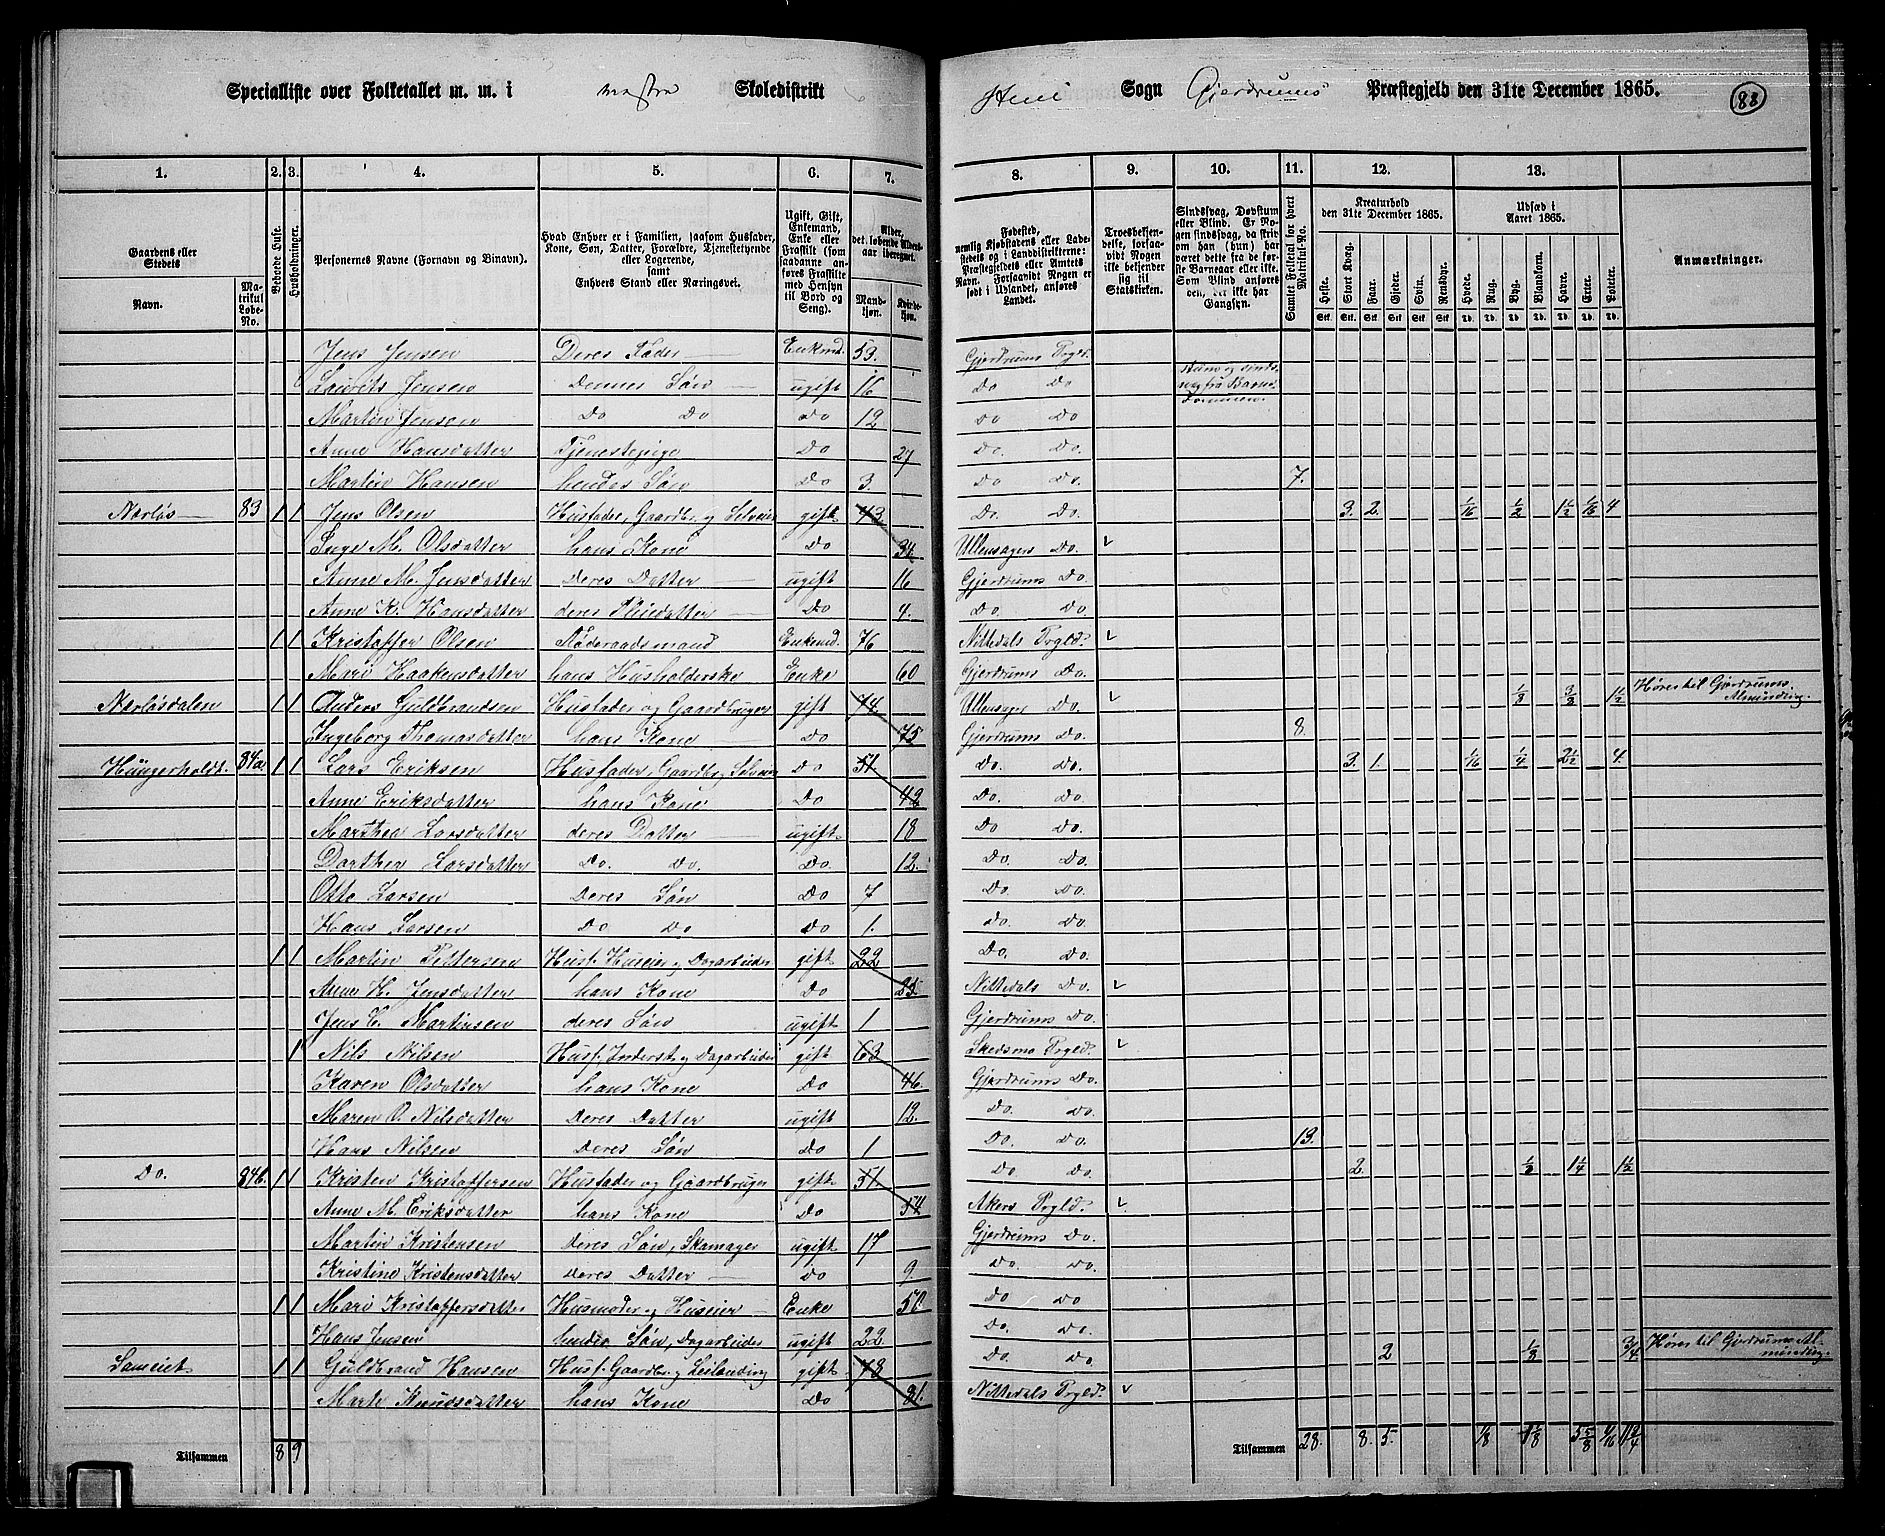 Specialliste over Folketallet m. m. i Skoledistrikt Sogn Gjerdrums Præstegjeld den 31te December 1865. 83
1. 2. 3. 4. 5. 6. 7. 8. 9. 10. 11. 12. 13.
Gaardens eller Stedets
Navn.
Matrikul Løbe-No.
Beboede Huse.
Husholdninger.
Personernes Navne (Fornavn og Binavn).
Hvad Enhver er i Familien, saasom Husfader, Kone, Søn, Datter, Forældre, Tjenestetyende eller Logerende, samt Enhvers Stand eller Næringsvei.
Ugift, Gift, Enkemand, Enke eller Fraskilt (som saadanne anføres Fraskilte med Hensyn til Bord og Seng).
Alder, det løbende Aldersaar iberegnet.
Mandkjøn.
Kvindekjøn.
Fødested, nemlig Kjøbstadens eller Ladestedets og i Landdistrikterne: Præstegjeldets eller Amtets Navn. Forsaavidt Nogen er født i Udlandet, anføres Landet.
Troesbekjendelse, forsaavidt Nogen ikke bekjender sig til Statskirken.
Sindssvag, Døvstum eller Blind. Er Nogen sindssvag, da skrives om han (hun) har været dette fra de første Barneaar eller ikke. Som Blind anføres den, der ikke har Gangsyn.
Samlet Folketal for hvert Matrikul-No.
Kreaturhold den 31te December 1865.
Heste. Stort Kvæg. Faar. Gjeder. Svin. Rensdyr.
Udsæd i Aaret 1865.
Hvede. Rug. Byg. Blandkorn. Havre. Erter. Poteter.
Anmærkninger.
Jens Jensen Deres Fader Enkmd. 53. Gjerdrums Prgld.
Lauritz Jensen Dennes Søn ugift 16 Do Do
Martin Jensen Do Do Do 12 Do Do
Anne Hansdatter Tjenestepige Do 27 Do. Do.
Martin Hansen hendes Søn Do 3. Do Do 7.
Nærløs 83 1 1 Jens Olsen Husfader, Gaardbr. og Selveier gift 43 Do. Do. 3. 2. 1/16 1/2 1 1/2 1/16 4
Inge M. Olsdatter hans Kone Do 34 Ullensagers Do.
Anne M. Jensdatter Deres Datter ugift 16 Gjerdrums Do.
Anne K. Hansdatter deres Pleiedatter Do 4. Do. Do.
1 1 Kristoffer Olsen Føderaadsmand Enkemd. 76 Nittedals Prgld.
Mari Haakensdatter hans Husholderske Enke 60 Gjerdrums Do.
Nærløsdalen 1 1 Anders Guldbrandsen Husfader og Gaardbruger gift 74 Ullensager Do. 1/8 3/8 1 1/2 Hører til Gjerdrums Alminding.
Ingeborg Thomasdatter hans Kone Do 75 Gjerdrums Do. 8.
Hungerholdt. 84a. 1 1 Lars Eriksen Husfader, Gaardbr. og Selveier Do 51 Do. Do. 3. 1. 1/16 1/4 2 1/2 4.
Anne Eriksdatter hans Kone Do 42 Do. Do.
Marthea Larsdatter deres Datter ugift 18 Do Do.
Dorthea Larsdatter Do. Do. Do. 12. Do. Do.
Otto Larsen Deres Søn Do 7 Do. Do.
Hans Larsen Do Do Do 1. Do. Do.
1 1 Martin Pettersen Husf. Huseier og Dagarbeider gift 22 Do. Do.
Anne H. Jensdatter hans Kone Do 25. Nittedals Do.
Jens E. Martinsen deres Søn ugift 1 Gjerdrums Do.
1 Nils Nilsen Husf. Inderst og Dagarbeider gift 63 Skedsmo Prgld.
Karen Olsdatter hans Kone Do 46. Gjerdrums Do.
Maren O. Nilsdatter Deres Datter ugift 12. Do. Do.
Hans Nilsen Deres Søn Do 1 Do. Do. 13.
Do. 84b. 1 1 Kristen Kristoffersen Husfader og Gaardbruger gift 51 Do Do. 2. 1/2 1 1/4 1 1/2
Anne M. Eriksdatter hans Kone Do. 54 Akers Prgld.
Martin Kristensen Deres Søn, Skomager ugift 17 Gjerdrums Do.
Kristine Kristensdatter Deres Datter Do 9. Do. Do.
1 1 Mari Kristoffersdatter Husmoder og Huseier Enke 50 Do Do
Hans Jensen hendes Søn, Dagarbeider ugift 22 Do. Do.
Sameiet 1 1 Guldbrand Hansen Husf. Gaardbr. og Leilending gift 78 Do. Do. 2 1/8 3/4 Hører til Gjerdrums Alminding.
Marte Knudsdatter hans Kone Do 81. Nittedals Prgld.
Tilsammen 8 9 Tilsammen 28. 8. 5. 1/8 1 1/8 5 5/8